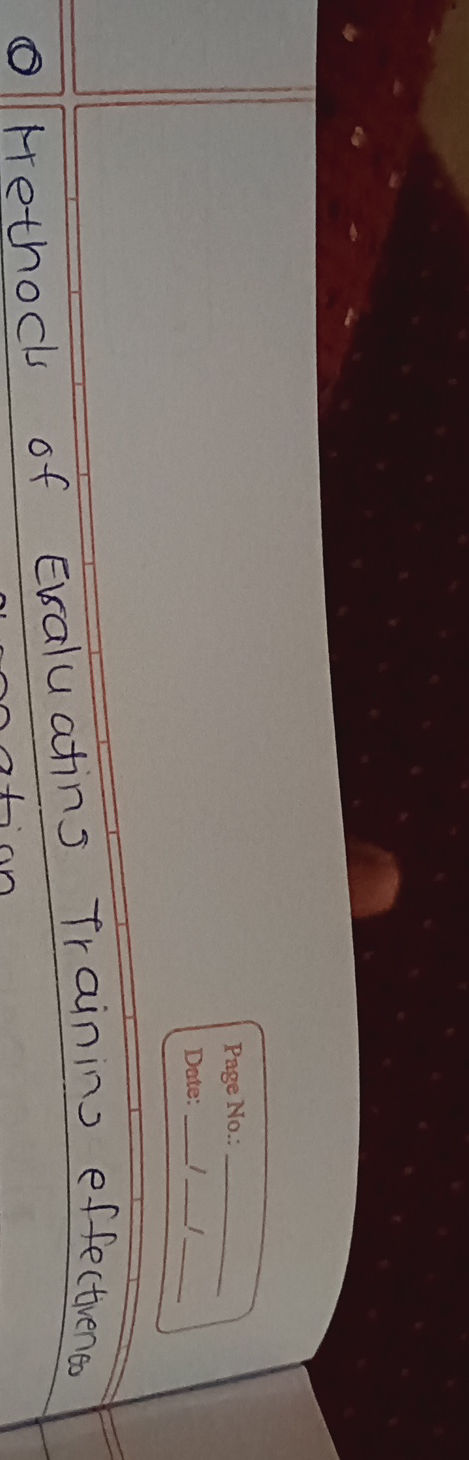 Page No.:
Date: / /
Methods of Evaluating Training effectiveness